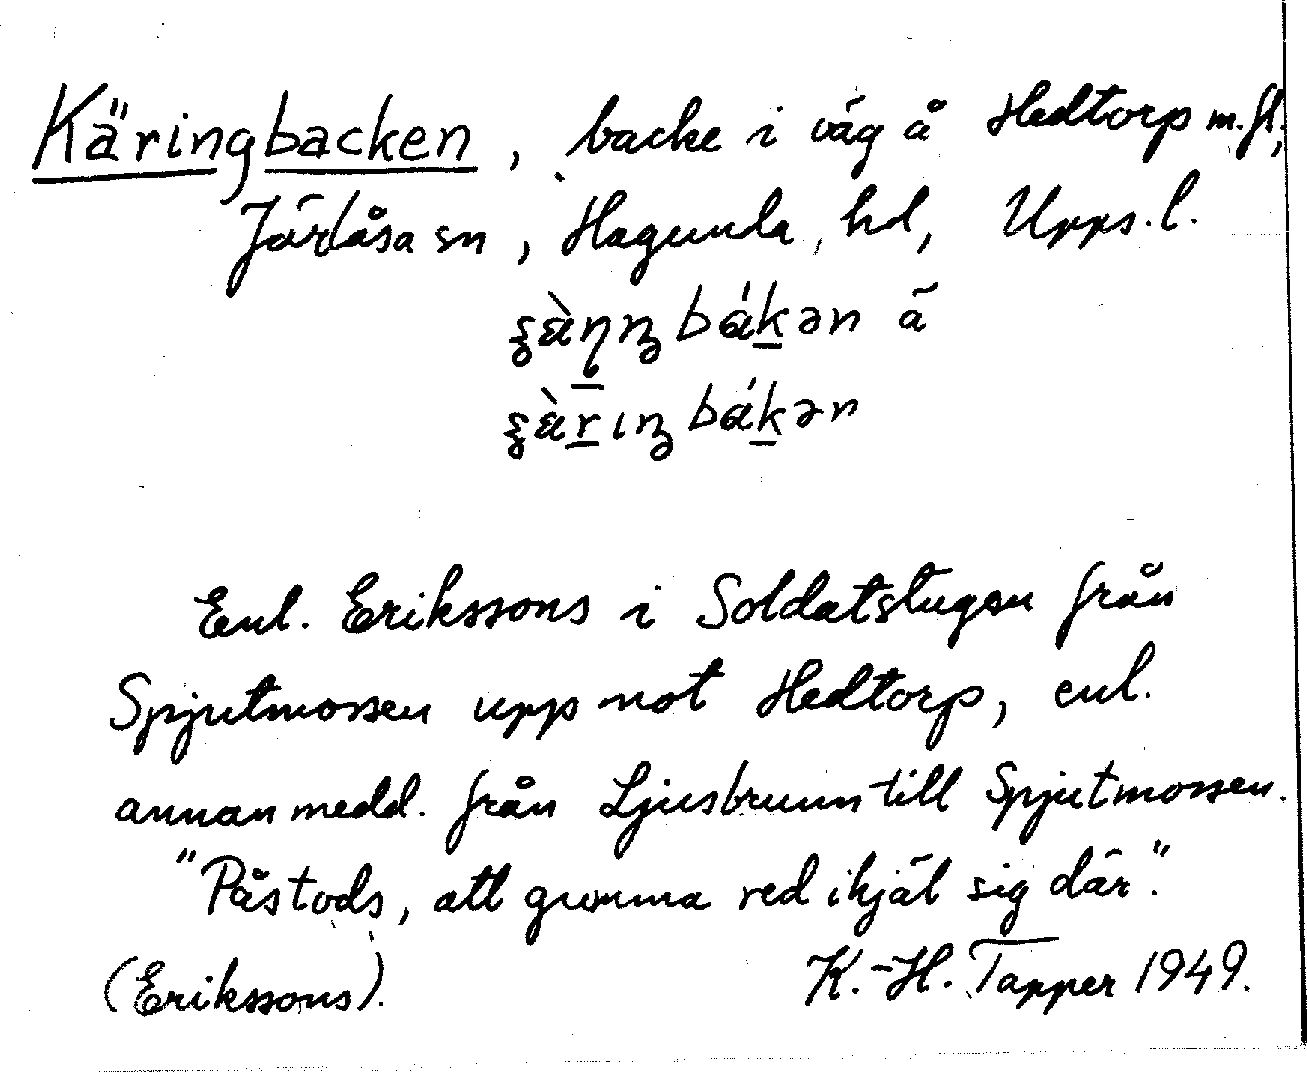 Käringbacken, backe i väg å Hedtorp m.fl.,
Järlåsa sn, Hagunda hd, Upps.l.
bák̲ən ä
bák̲ən
Enl. Erikssons i Soldatstugan från
Spjutmossen upp mot Hedtorp, enl.
annan medd. från Ljusbrunn till Spjutmossen.
"Påstods, att gumma red ihjäl sig där".
(Erikssons). K.-H. Tapper 1949.